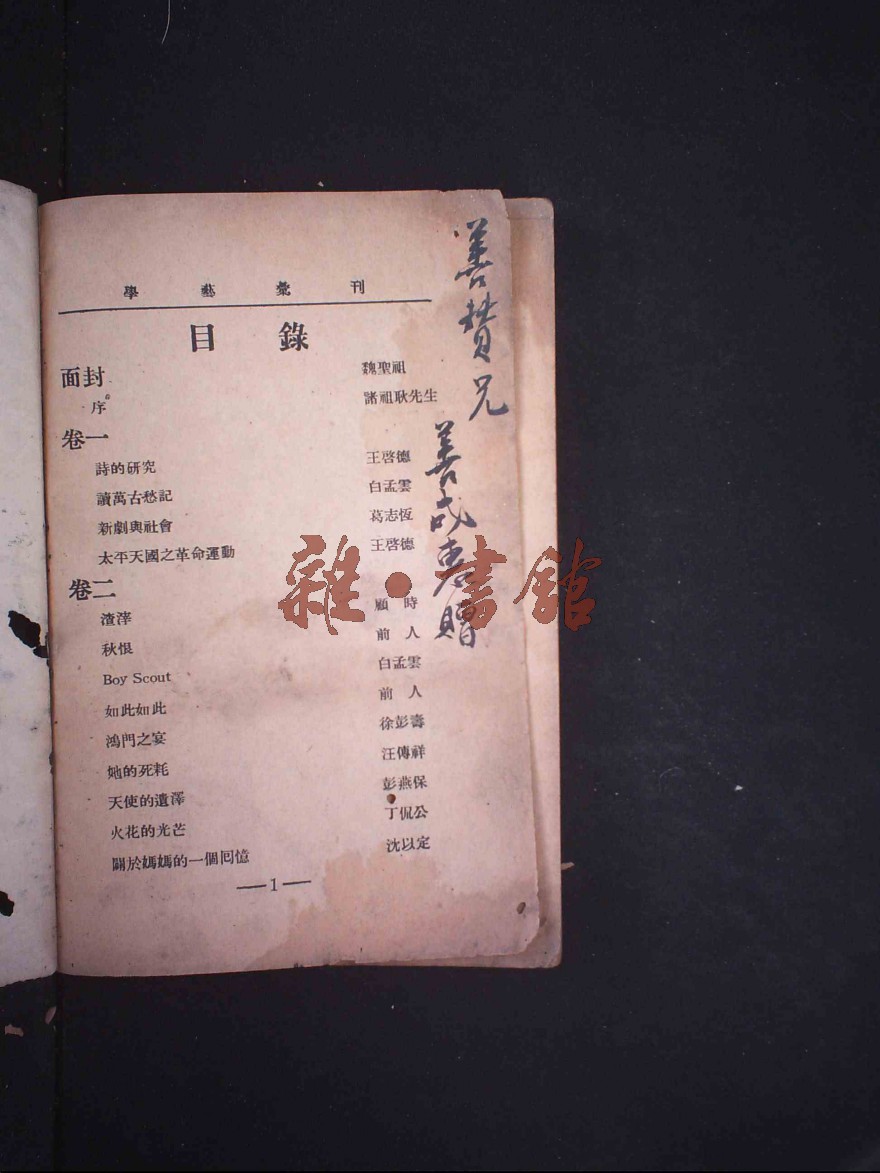 學藝彙刊
目錄
面封 魏聖祖
序 諸祖耿先生
卷一
詩的研究 王啓德
讀萬古愁記 白孟雲
新劇與社會 葛志恆
太平天國之革命運動 王啓德
卷二
渣滓 顧時
秋恨 前人
Boy Scout 白孟雲
如此如此 前人
鴻門之宴 徐彭壽
她的死耗 汪傳祥
天使的遺澤 彭燕保
火花的光芒 丁侃公
關於媽媽的一個囘憶 沈以定
—1—
善贊兄
善成惠贈
雜·書館